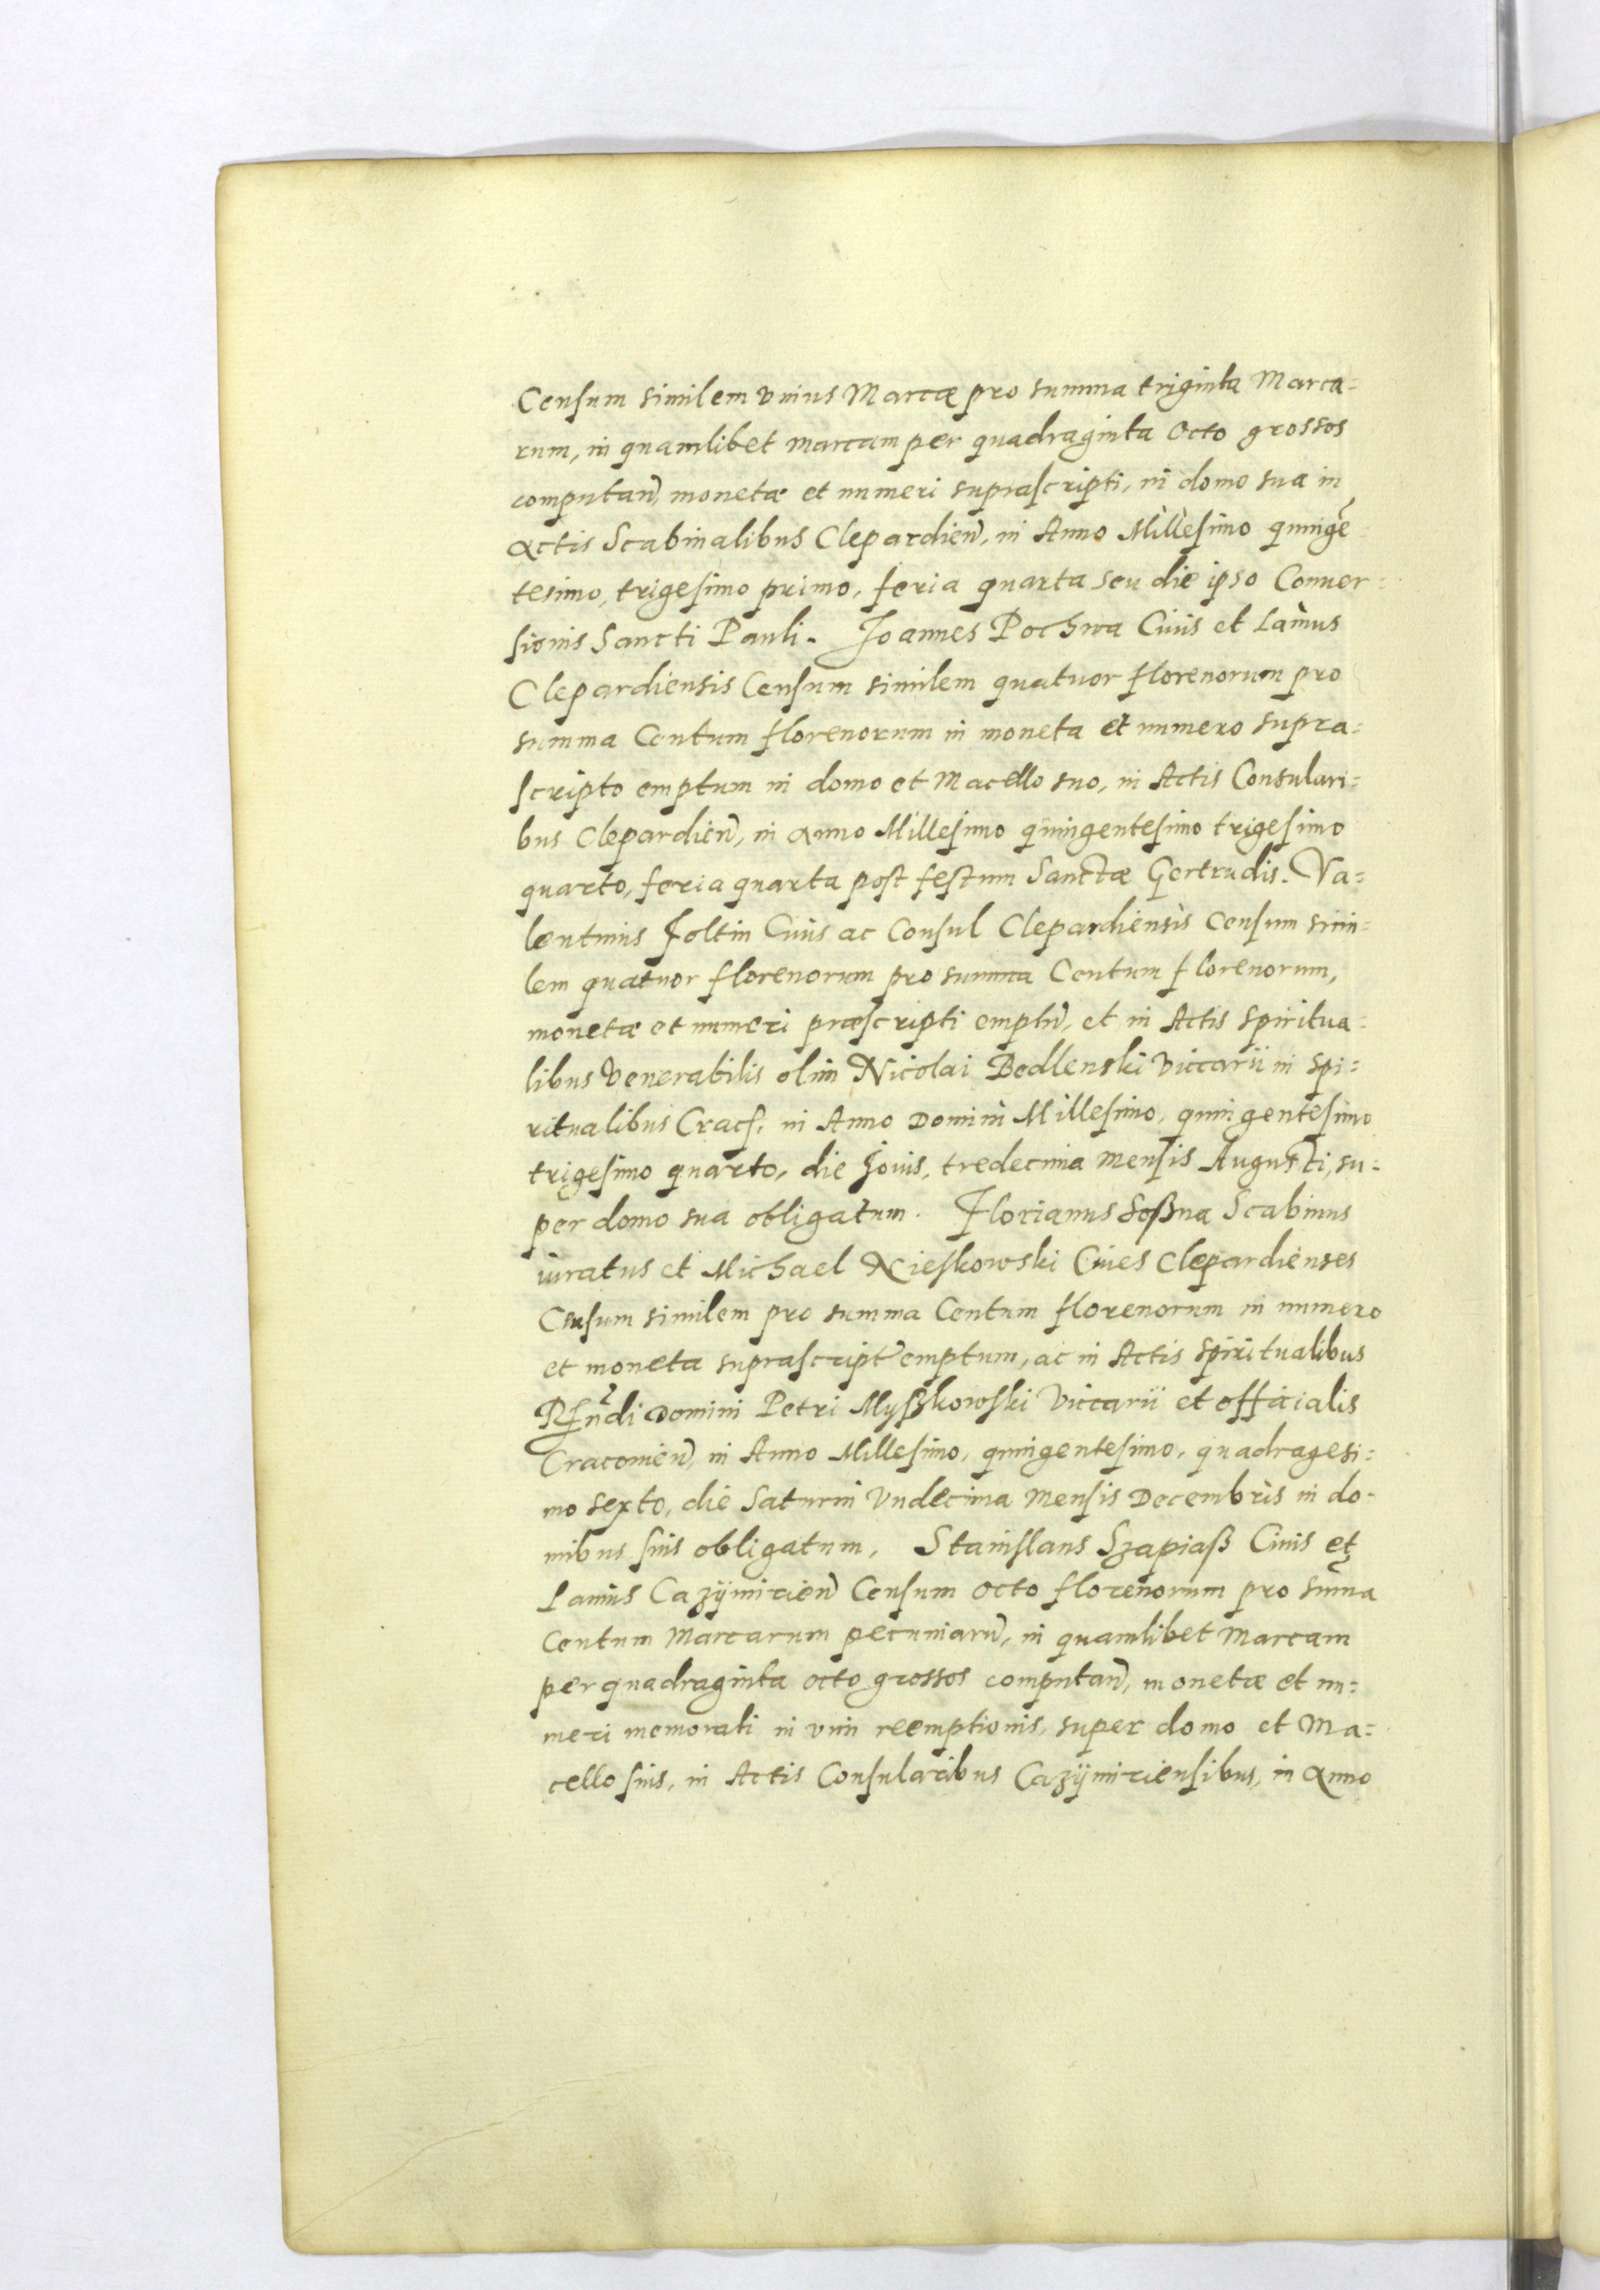 Censum similem vnius Marcæ pro summa triginta Marca=
rum, in quamlibet marcam per quadraginta Octo grossos
computan̄, monetæ et numeri suprascripti, in domo sua in
actis Scabinalibus Clepardien̄, in Anno Millesimo quingē
tesimo, trigesimo primo, feria quarta seu die ipso Conuer=
sionis Sancti Pauli. Joannes Pochwa Ciuis et Lanius
Clepardiensis Censum similem quatuor florenorum pro
summa Centum florenorum in moneta et numero supra=
scripto emptum in domo et Macello suo, in Actis Consulari=
bus Clepardien̄, in anno Millesimo quingentesimo trigesimo
quarto, feria quarta post festum Sanctæ Gertrudis. Va=
lentinus Foltin Ciuis ac Consul Clepardiensis Censum simi=
lem quatuor florenorum pro summa Centum florenorum,
monetæ et numeri præscripti emptū, et in Actis Spiritua=
libus Venerabilis olim Nicolai Bedlenski Viccarii in Spi=
ritualibus Crac̄. in Anno Domini Millesimo, quingentesimo
trigesimo quarto, die Jouis, tredecima mensis Augusti, su=
per domo sua obligatum. Florianus Soßna Scabinus
iuratus et Michael Nieskowski Ciues Clepardienses
Censum similem pro summa Centum florenorum in numero
et moneta suprascript̄ emptum, ac in Actis Spiritualibus
Rn̄di Domini Petri Myßkowski Viccarii et officialis
Cracouien̄, in Anno Millesimo, quingentesimo, quadragesi=
mo sexto, die Saturni Vndecima mensis Decembris in do-
mibus suis obligatum. Stanislaus Szapiaß Ciuis et
Lanius Cazÿmirien̄ Censum octo florenorum pro sum̄a
Centum Marcarum pecuniarū, in quamlibet Marcam
per quadraginta octo grossos computan̄, monetæ et nu=
meri memorati in vim reemptionis, super domo et Ma=
cello suis, in Actis Consularibus Cazÿmiriensibus, in anno